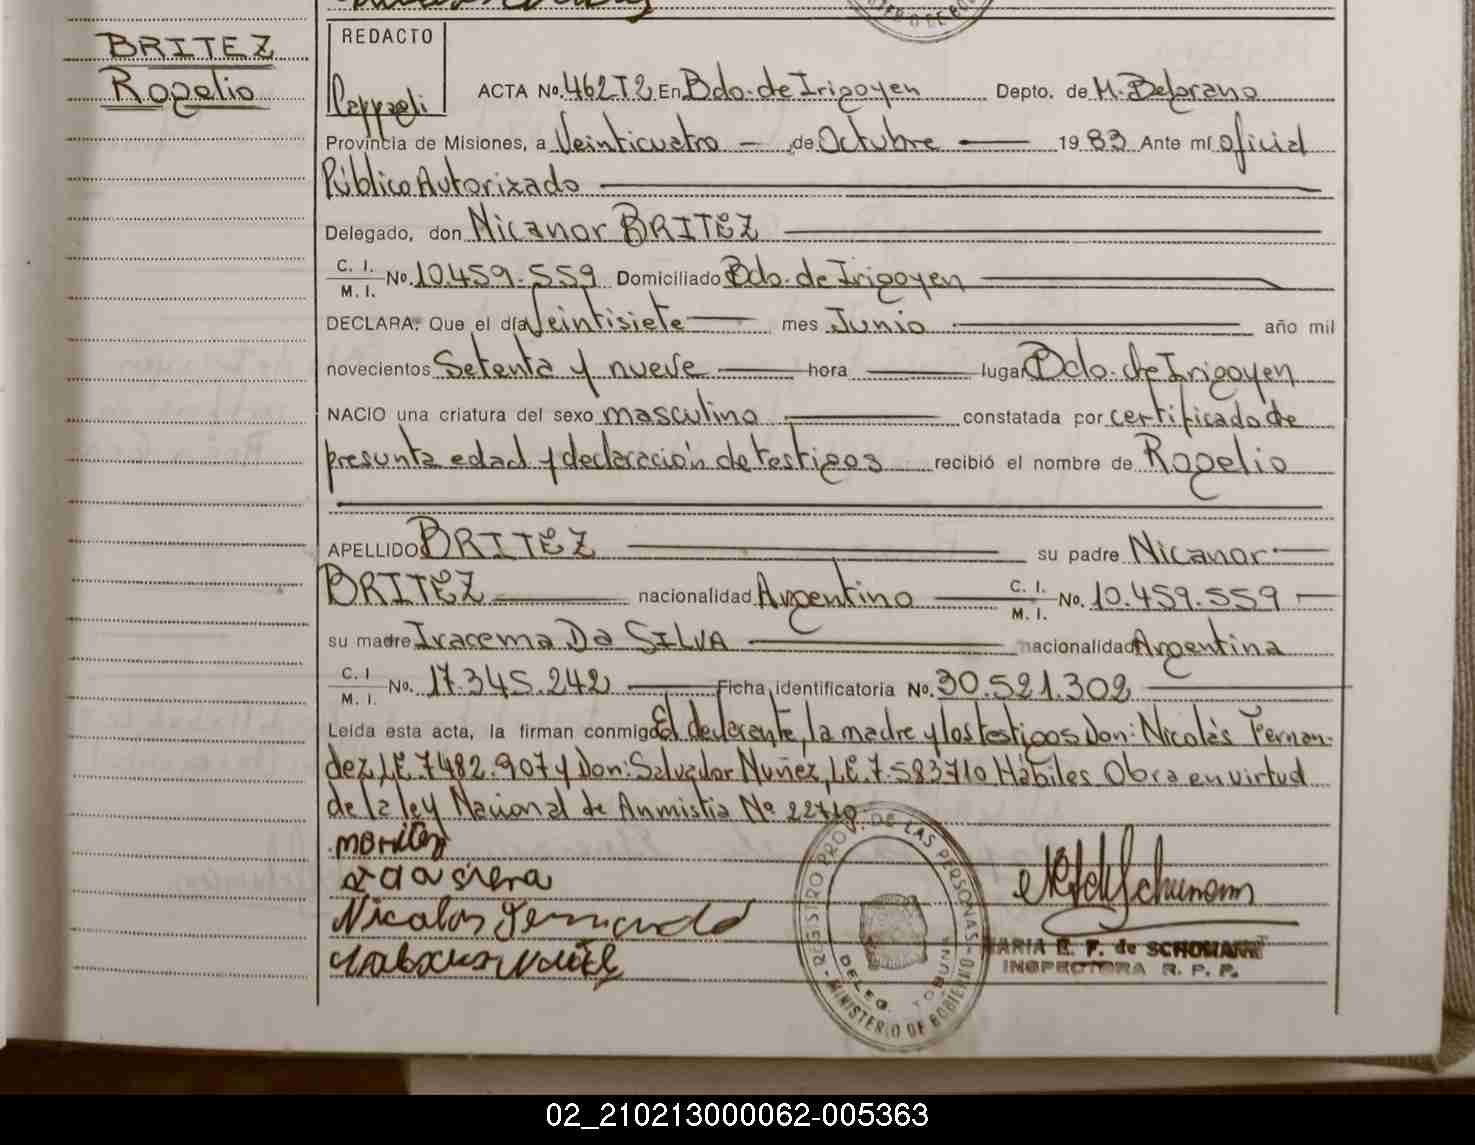 BRITEZ
Rogelio
REDACTO
ACTA No. 462T2 En Bdo. de Irigoyen Depto. de M. Belgrano
Provincia de Misiones, a Veinticuatro de Octubre 1983 Ante mí oficial
Público Autorizado
Delegado, don Nicanor BRITEZ
C. I.
M. I. No. 10.459.559 Domiciliado Bdo. de Irigoyen
DECLARA: Que el día Veintisiete mes Junio año mil
novecientos Setenta y nueve hora lugar Bdo. de Irigoyen
NACIO una criatura del sexo masculino constatada por certificado de
presunta edad y declaración de testigos recibió el nombre de Rogelio
APELLIDO BRITEZ su padre Nicanor
BRITEZ nacionalidad Argentino C. I. M. I. No. 10.459.559
su madre Iracema Da SILVA nacionalidad Argentina
C. I M. I. No. 17.345.242 Ficha identificatoria No. 30.521.302
Leída esta acta, la firman conmigo El declarante, la madre y los testigos Don: Nicolás Fernan-
dez, L.E. 7482.907 y Don: Salvador Nuñez, L.E. 7.583710 Hábiles Obra en virtud
de la ley Nacional de Anmistia Nº
REGISTRO PROV. DE LAS PERSONAS - MINISTERIO DE GOBIERNO
DELEG.
MARIA E. F. de SCHUMANN
INSPECTORA R. P. P.
02_210213000062-005363